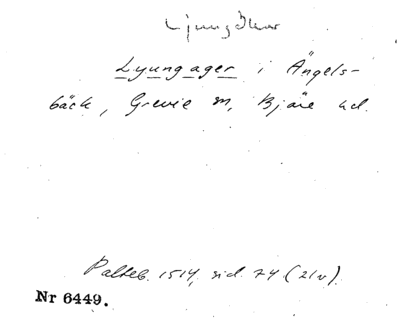 Ljungåker
Lyungager i Ängels-
bäck, Grevie sn, Bjäre hd.
Palteb. 1514, sid. 74 (21v).
Nr 6449.